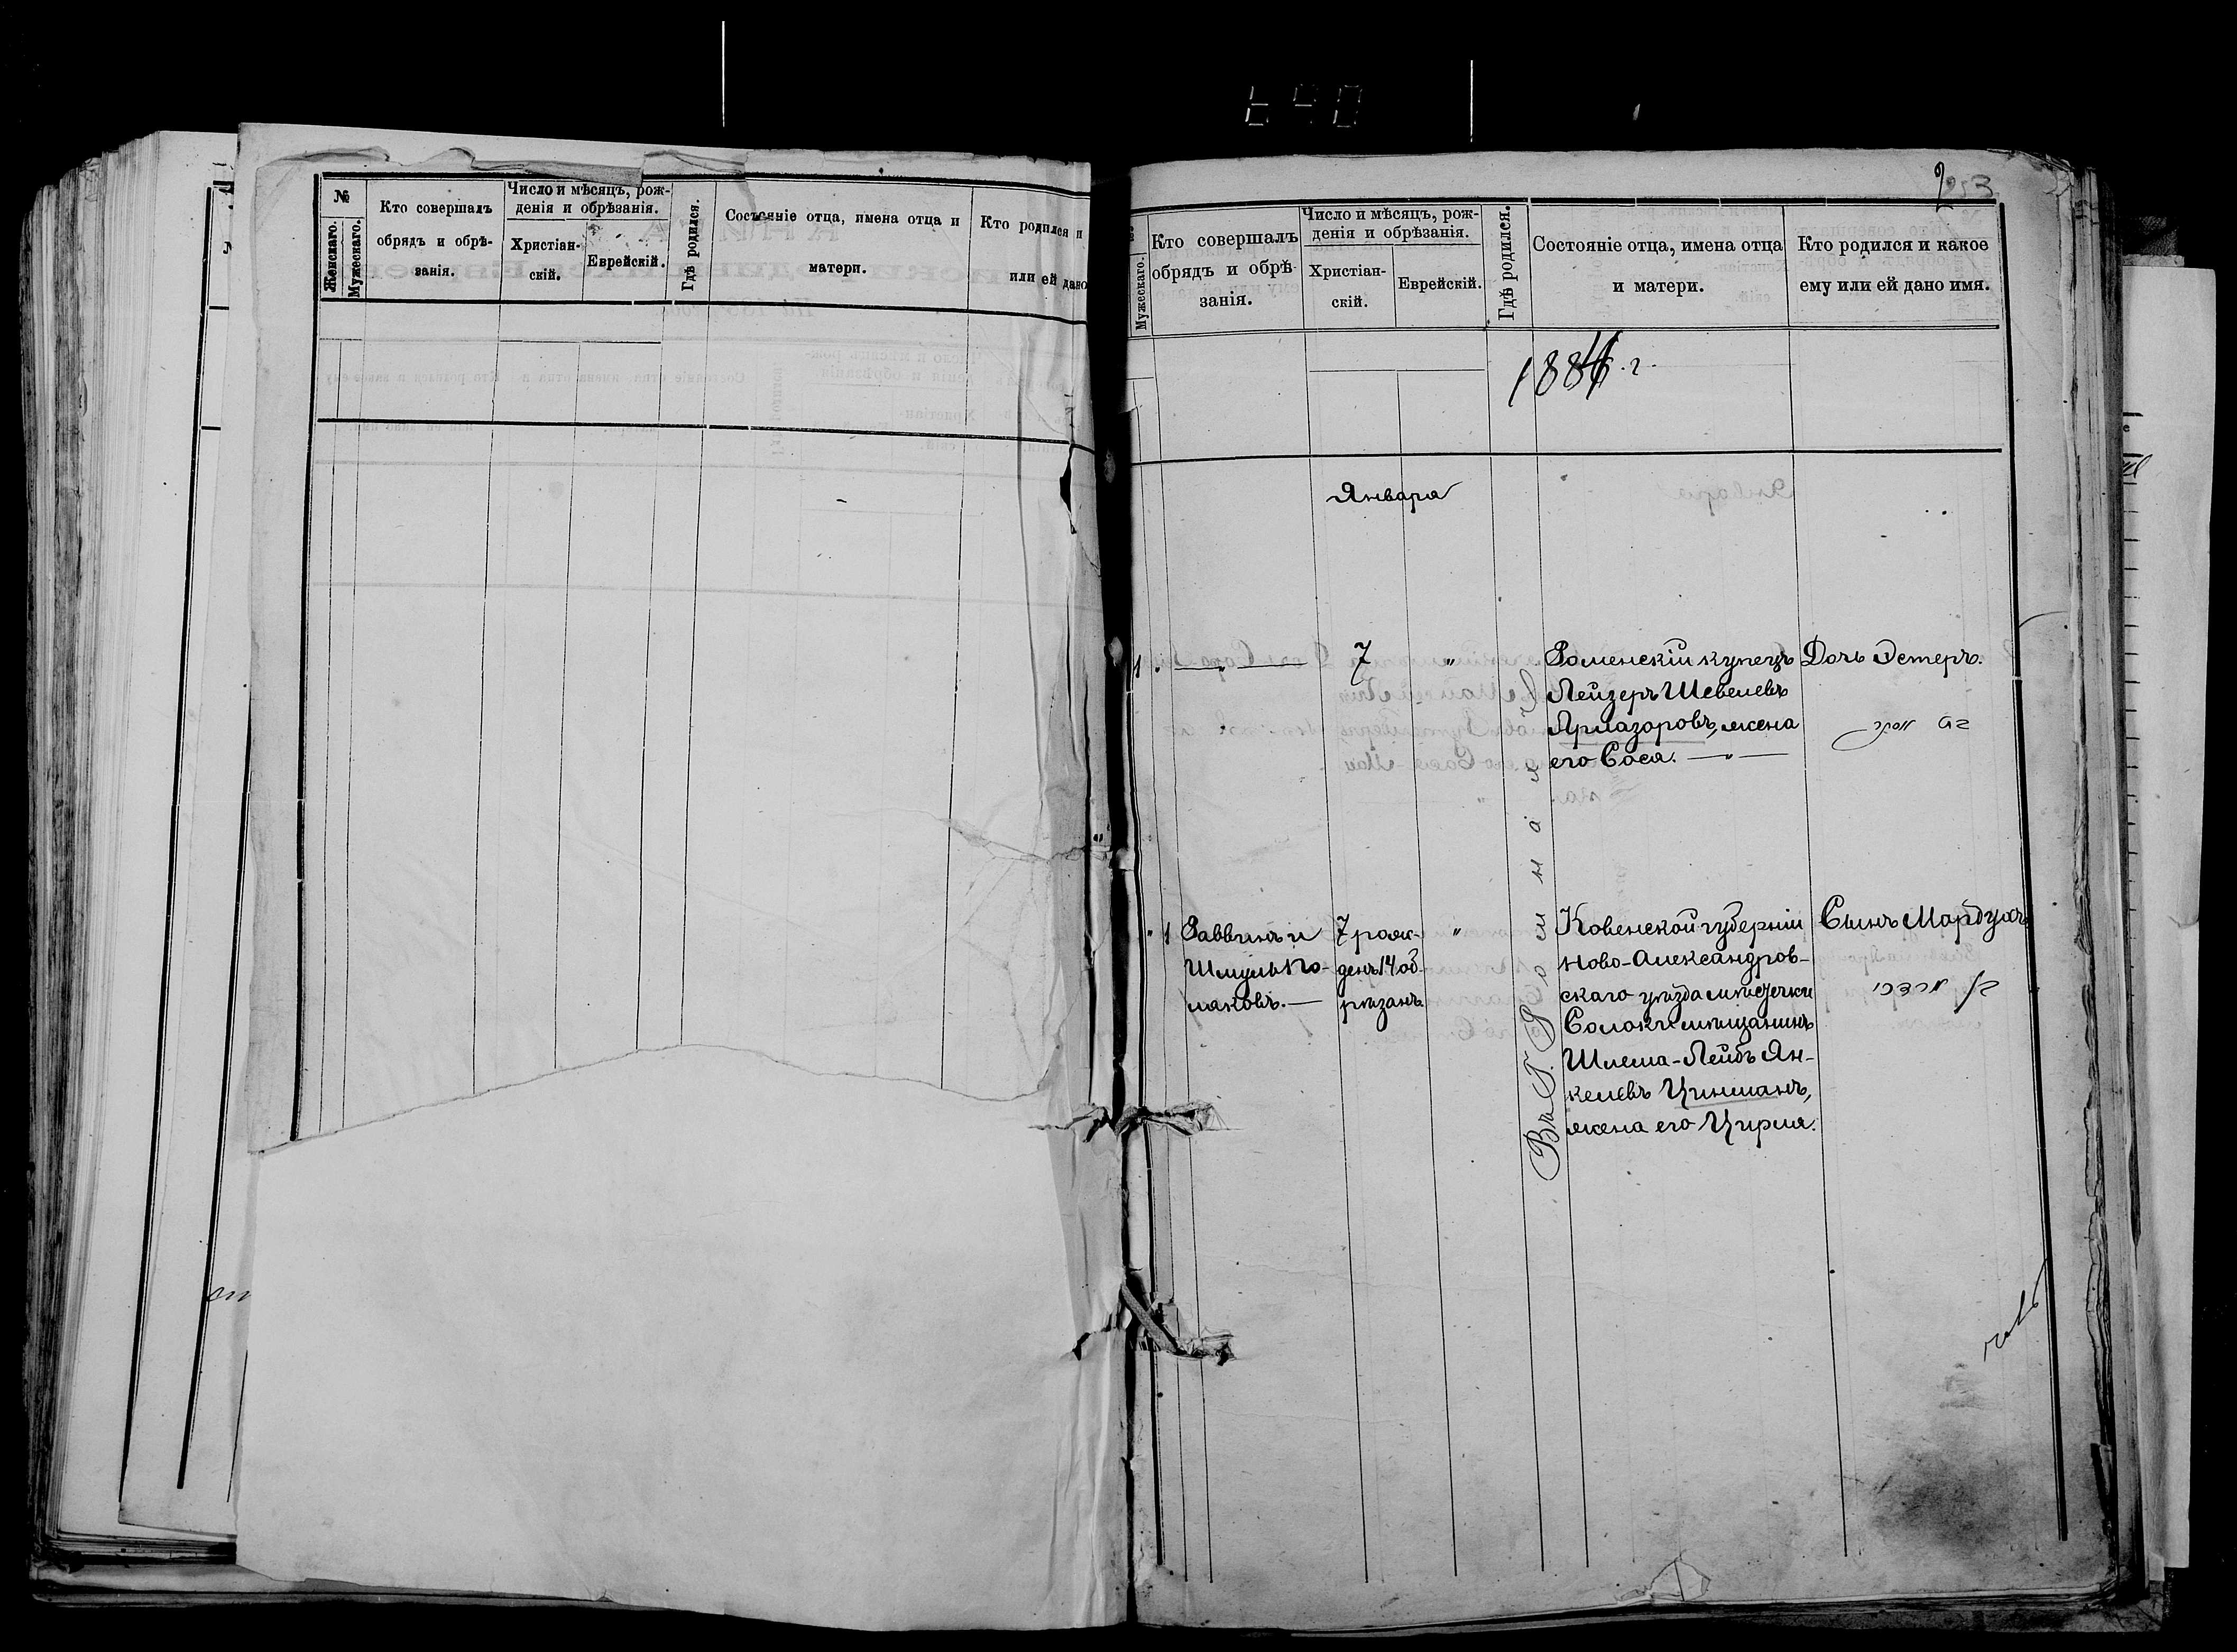 №
Женскаго.
Мужескаго.
Кто совершалъ
обрядъ и обрѣ-
занія.
Число и мѣсяцъ, рож-
денія и обрѣзанія.
Христіан-
скій.
Еврейскій.
Гдѣ родился.
Состояніе отца, имена отца и
матери.
Кто родился и
или ей дано
253
Мужескаго.
Кто совершалъ
обрядъ и обрѣ-
занія.
Число и мѣсяцъ, рож-
денія и обрѣзанія.
Христіан-
скій.
Еврейскій.
Гдѣ родился.
Состояніе отца, имена отца
и матери.
Кто родился и какое
ему или ей дано имя.
1884 г.
Января
1 " — " — 7 "
Роменскій купецъ
Лейзеръ Шевелевъ
Ярмазоровъ, жена
его Сося. — " —
Дочь Эстеръ.
בת אסתר
Въ Г. Ромнахъ
" 1
Раввинъ и
Шмуль По-
ляковъ. —
7 рож-
денъ 14 об-
рѣзанъ
"
Ковенской губерніи
Ново-Александров-
скаго уѣзда мѣстечки
Солокъ мѣщанинъ
Шлема-Лейбъ Ян-
келевъ Цинманъ,
жена его Цирля.
Сынъ Мордухъ
בן מרדכי